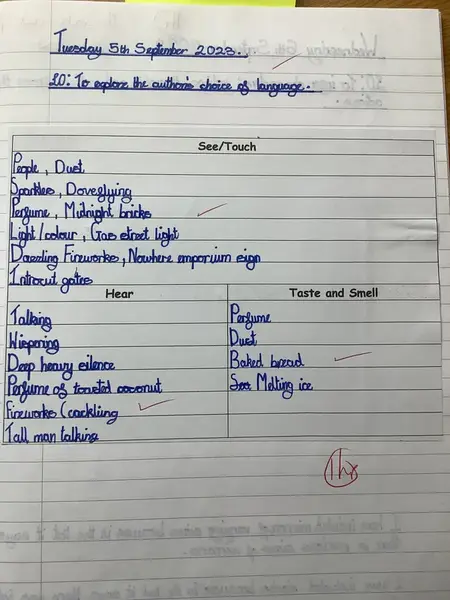 Tuesday 5th September 2023.
LO: To explore the author's choice of language.
See/Touch
People, Dust
Sparklers, Dove flying
Perfume, Midnight bricks
Light/colour, Gas street light
Dazzling Fireworks, Nowhere emporium sign
Introcut gates
Hear
Talking
Wispering
Deep heavy silence
Perfume of toasted coconut
Fireworks (cackling
Tall man talking
Taste and Smell
Perfume
Dust
Baked bread
Melting ice